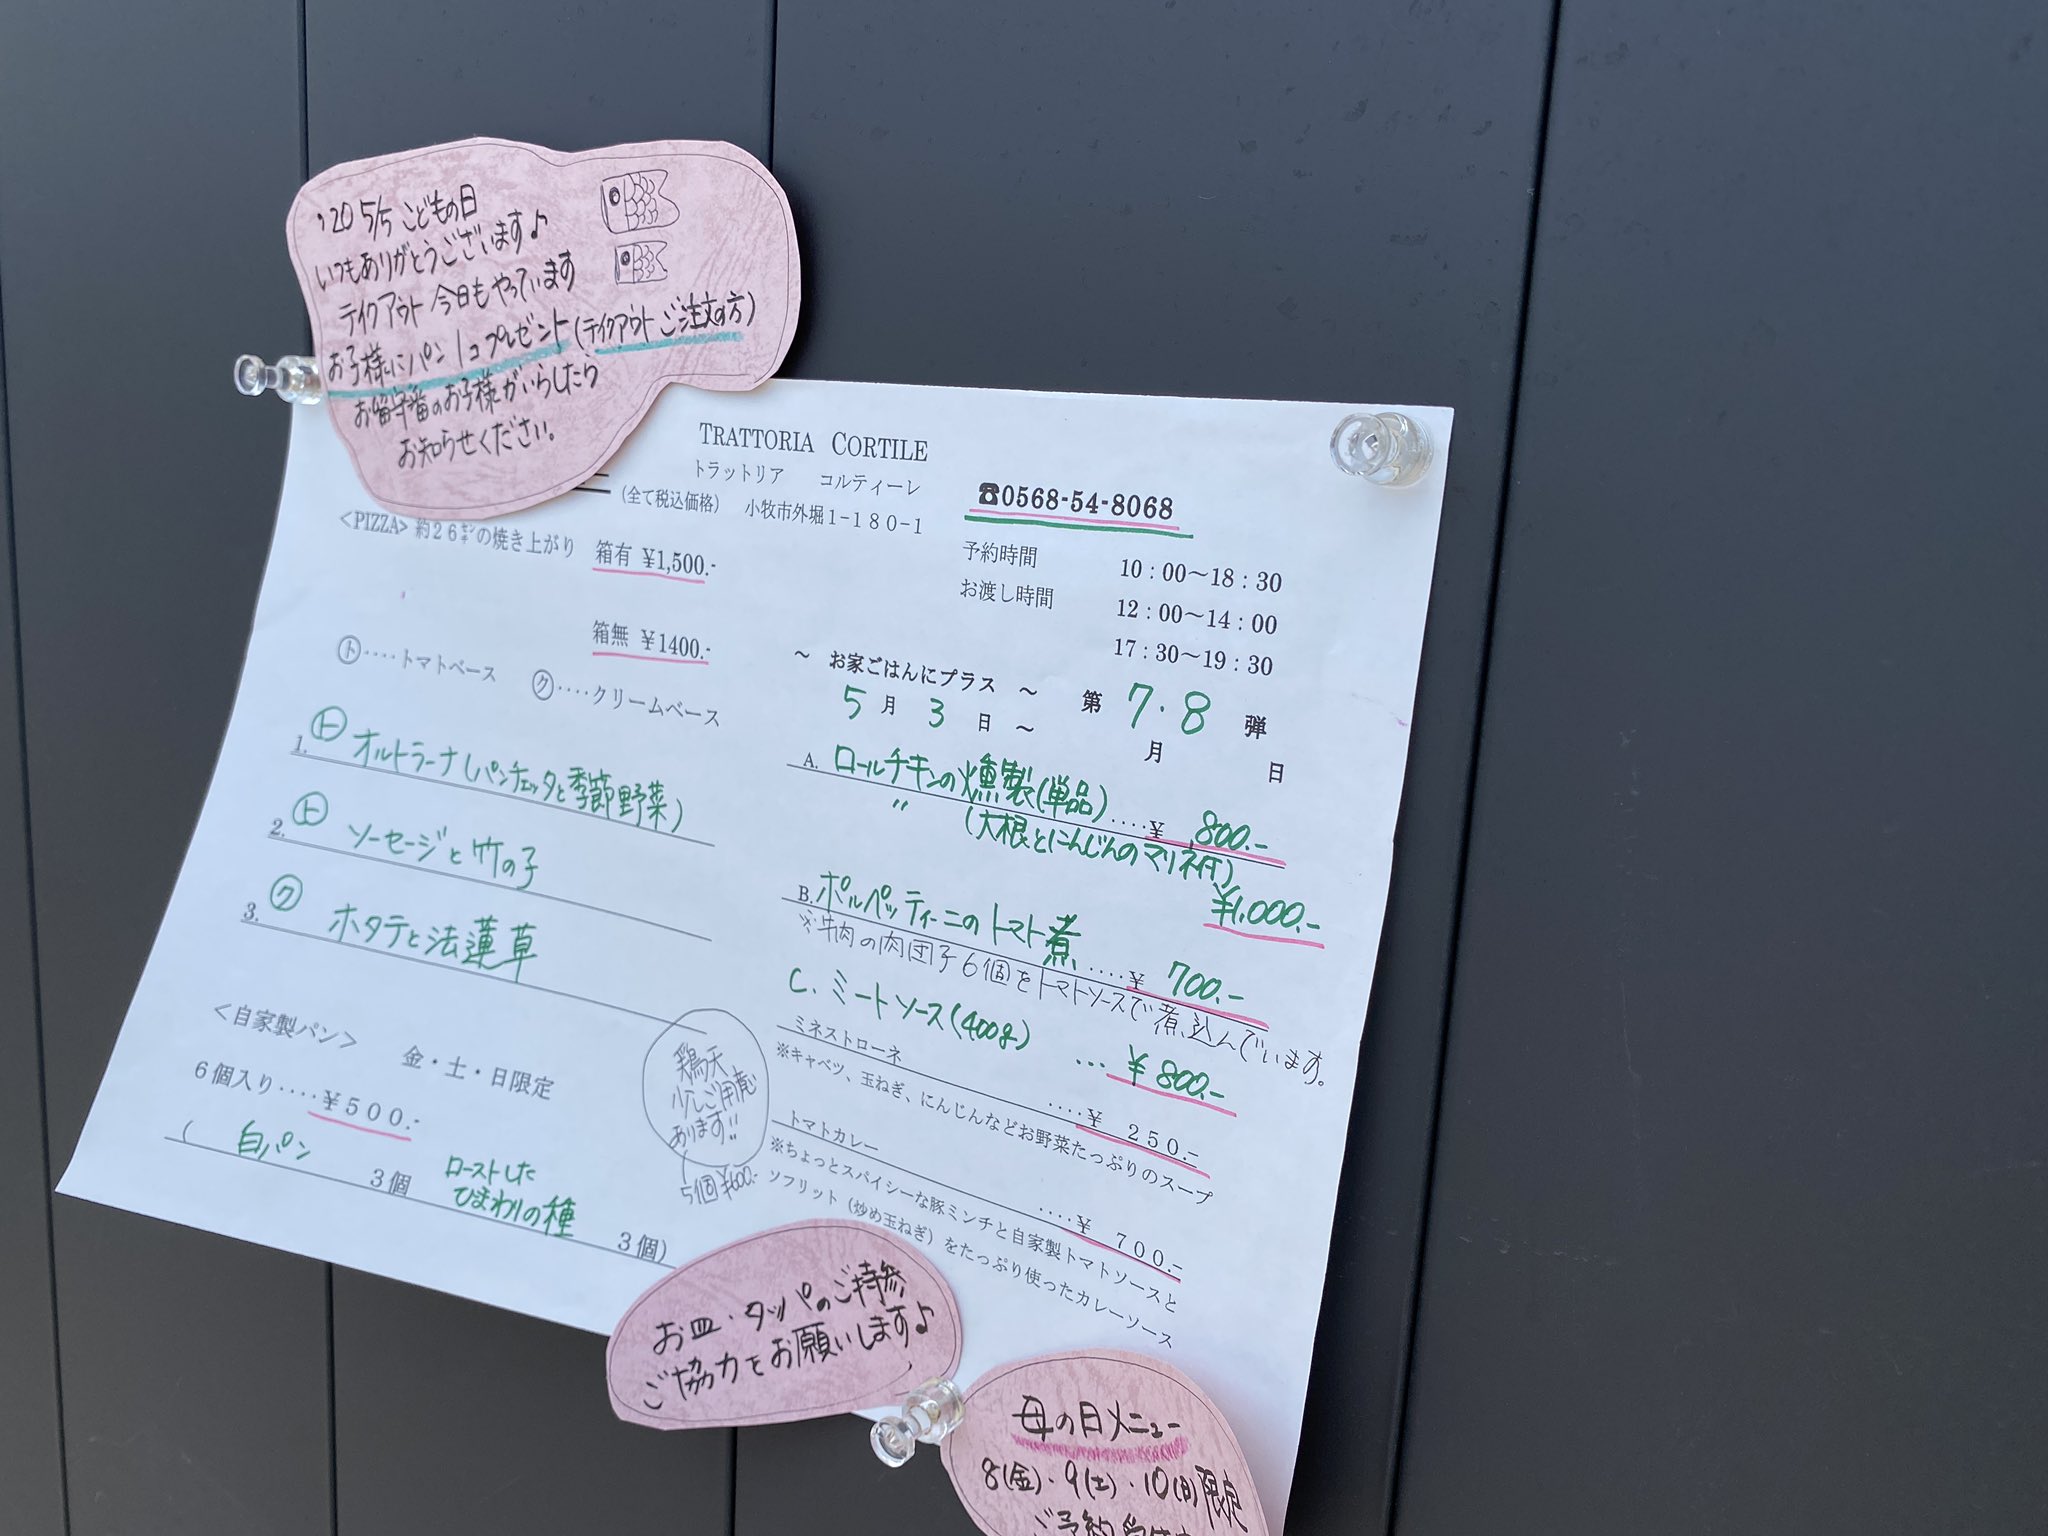 '20 5/5 こどもの日
いつもありがとうございます♪
テイクアウト 今日もやっています
お子様にパン1コプレゼント(テイクアウトご注文の方)
お留守番のお子様がいらしたら
お知らせください。
TRATTORIA CORTILE
トラットリア コルティーレ
(全て税込価格) 小牧市外堀1-180-1
☎0568-54-8068
予約時間 10:00～18:30
お渡し時間 12:00～14:00
17:30～19:30
<PIZZA> 約26㌢の焼き上がり 箱有 ¥1,500.-
箱無 ¥1400.-
ト‥‥トマトベース ク‥‥クリームベース
1. ト オルトラーナ(パンチェッタと季節野菜)
2. ト ソーセージと竹の子
3. ク ホタテと法蓮草
<自家製パン> 金・土・日限定
6個入り‥‥¥500.-
( 白パン 3個 ローストした
ひまわりの種 3個)
鶏天
少しご用意
あります!!
5個¥600.-
～ お家ごはんにプラス ～ 第7.8弾
5月3日～ 月 日
A. ロールチキンの燻製(単品)‥‥¥ 800.-
〃 (大根とにんじんのマリネ付)
¥1,000.-
B. ポルペッティーニのトマト煮‥‥¥ 700.-
※牛肉の肉団子6個をトマトソースで煮込んでいます。
C. ミートソース(400g) … ¥800.-
ミネストローネ ‥‥¥ 250.-
※キャベツ、玉ねぎ、にんじんなどお野菜たっぷりのスープ
トマトカレー ‥‥¥ 700.-
※ちょっとスパイシーな豚ミンチと自家製トマトソースと
ソフリット(炒め玉ねぎ)をたっぷり使ったカレーソース
お皿・タッパのご持参
ご協力をお願いします♪
母の日メニュー
8(金)・9(土)・10(日)限定
ご予約